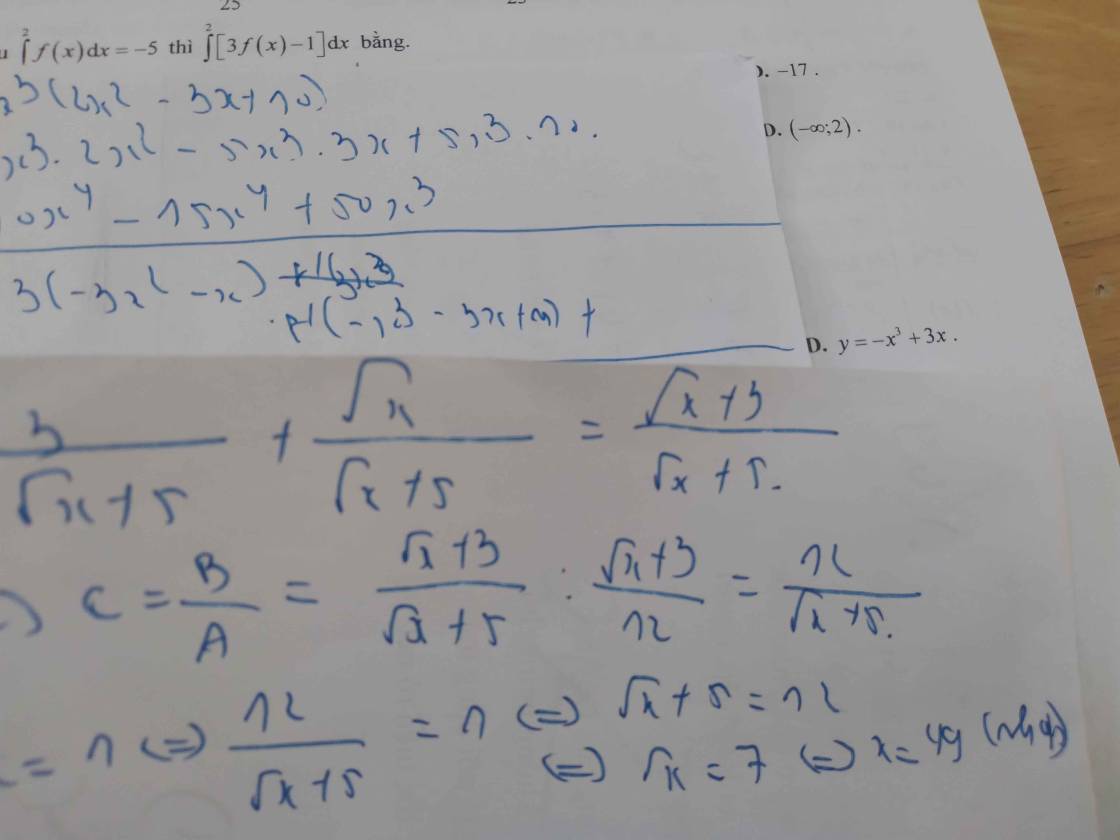 25
∫² f(x)dx = −5 thì ∫² [3f(x) − 1]dx bằng.
D. −17.
D. (−∞;2).
x³(2x² - 3x + 10)
x³. 2x² - 5x³. 3x + 5x³. 10.
0x⁴ - 15x⁴ + 50x³
3(-3x² - x)
D. y = −x³ + 3x.
3/(√x + 5) + √x/(√x + 5) = (√x + 3)/(√x + 5).
C = B/A = (√x + 3)/(√x + 5) : (√x + 3)/12 = 12/(√x + 5).
= 1 <=> 12/(√x + 5) = 1 <=> √x + 5 = 12
<=> √x = 7 <=> x = 49